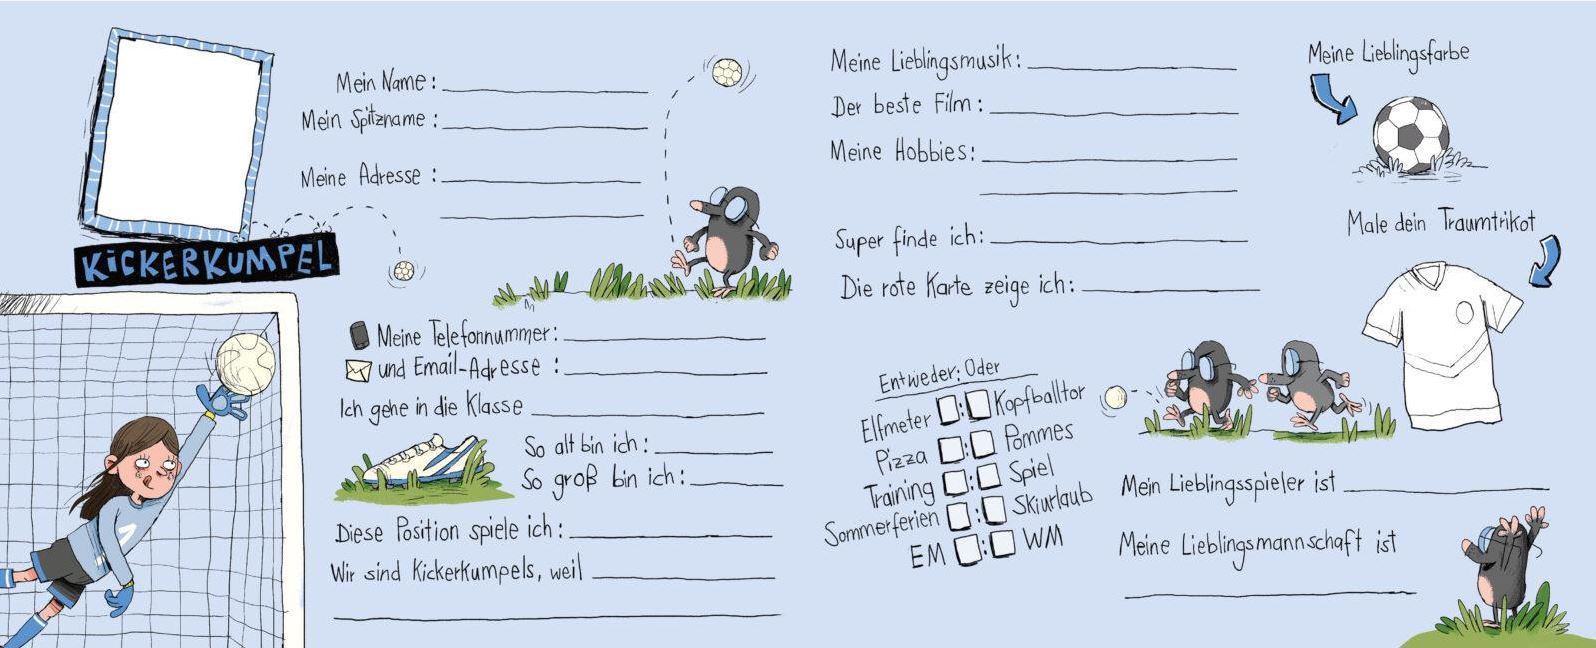 Mein Name:
Mein Spitzname:
Meine Adresse:
KiCKERKUMPEL
Meine Telefonnummer:
und Email-Adresse:
Ich gehe in die Klasse
So alt bin ich:
So groß bin ich:
Diese Position spiele ich:
Wir sind Kickerkumpels, weil
Meine Lieblingsmusik:
Der beste Film:
Meine Hobbies:
Super finde ich:
Die rote Karte zeige ich:
Entweder: Oder
Elfmeter : Kopfballtor
Pizza : Pommes
Training : Spiel
Sommerferien : Skiurlaub
EM : WM
Meine Lieblingsfarbe
Male dein Traumtrikot
Mein Lieblingsspieler ist
Meine Lieblingsmannschaft ist